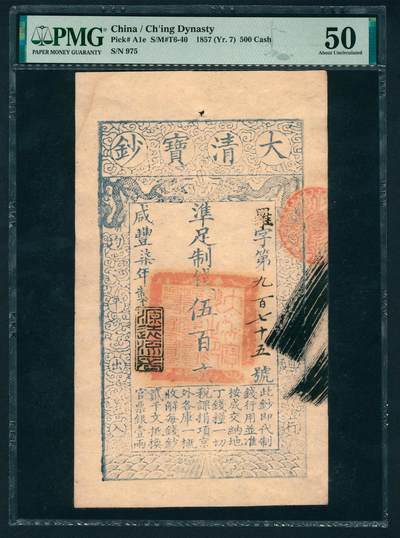 PMG
PAPER MONEY GUARANTY
China / Ch'ing Dynasty
Pick# A1e S/M#T6-40 1857 (Yr. 7) 500 Cash
S/N 975
50
About Uncirculated
大清寶鈔
字第九百七十五號
準足制錢伍百文
咸豐柒年
此鈔即代制
錢行用並准
按成交納地
丁錢糧一切
稅課捐項京
外各庫一概
收解每錢鈔
貳千文抵換
官票銀壹兩